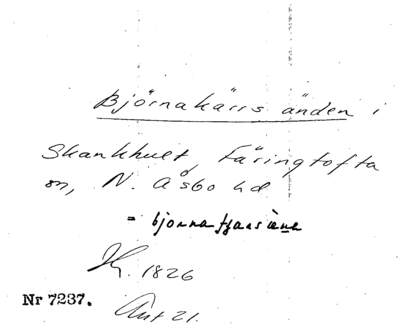 Björnakärrs änden i
Skankhult, Färingtofta
sn, N. Åsbo hd
= bjornatjarsàna
1826
Nr 7237.
Ant 21.